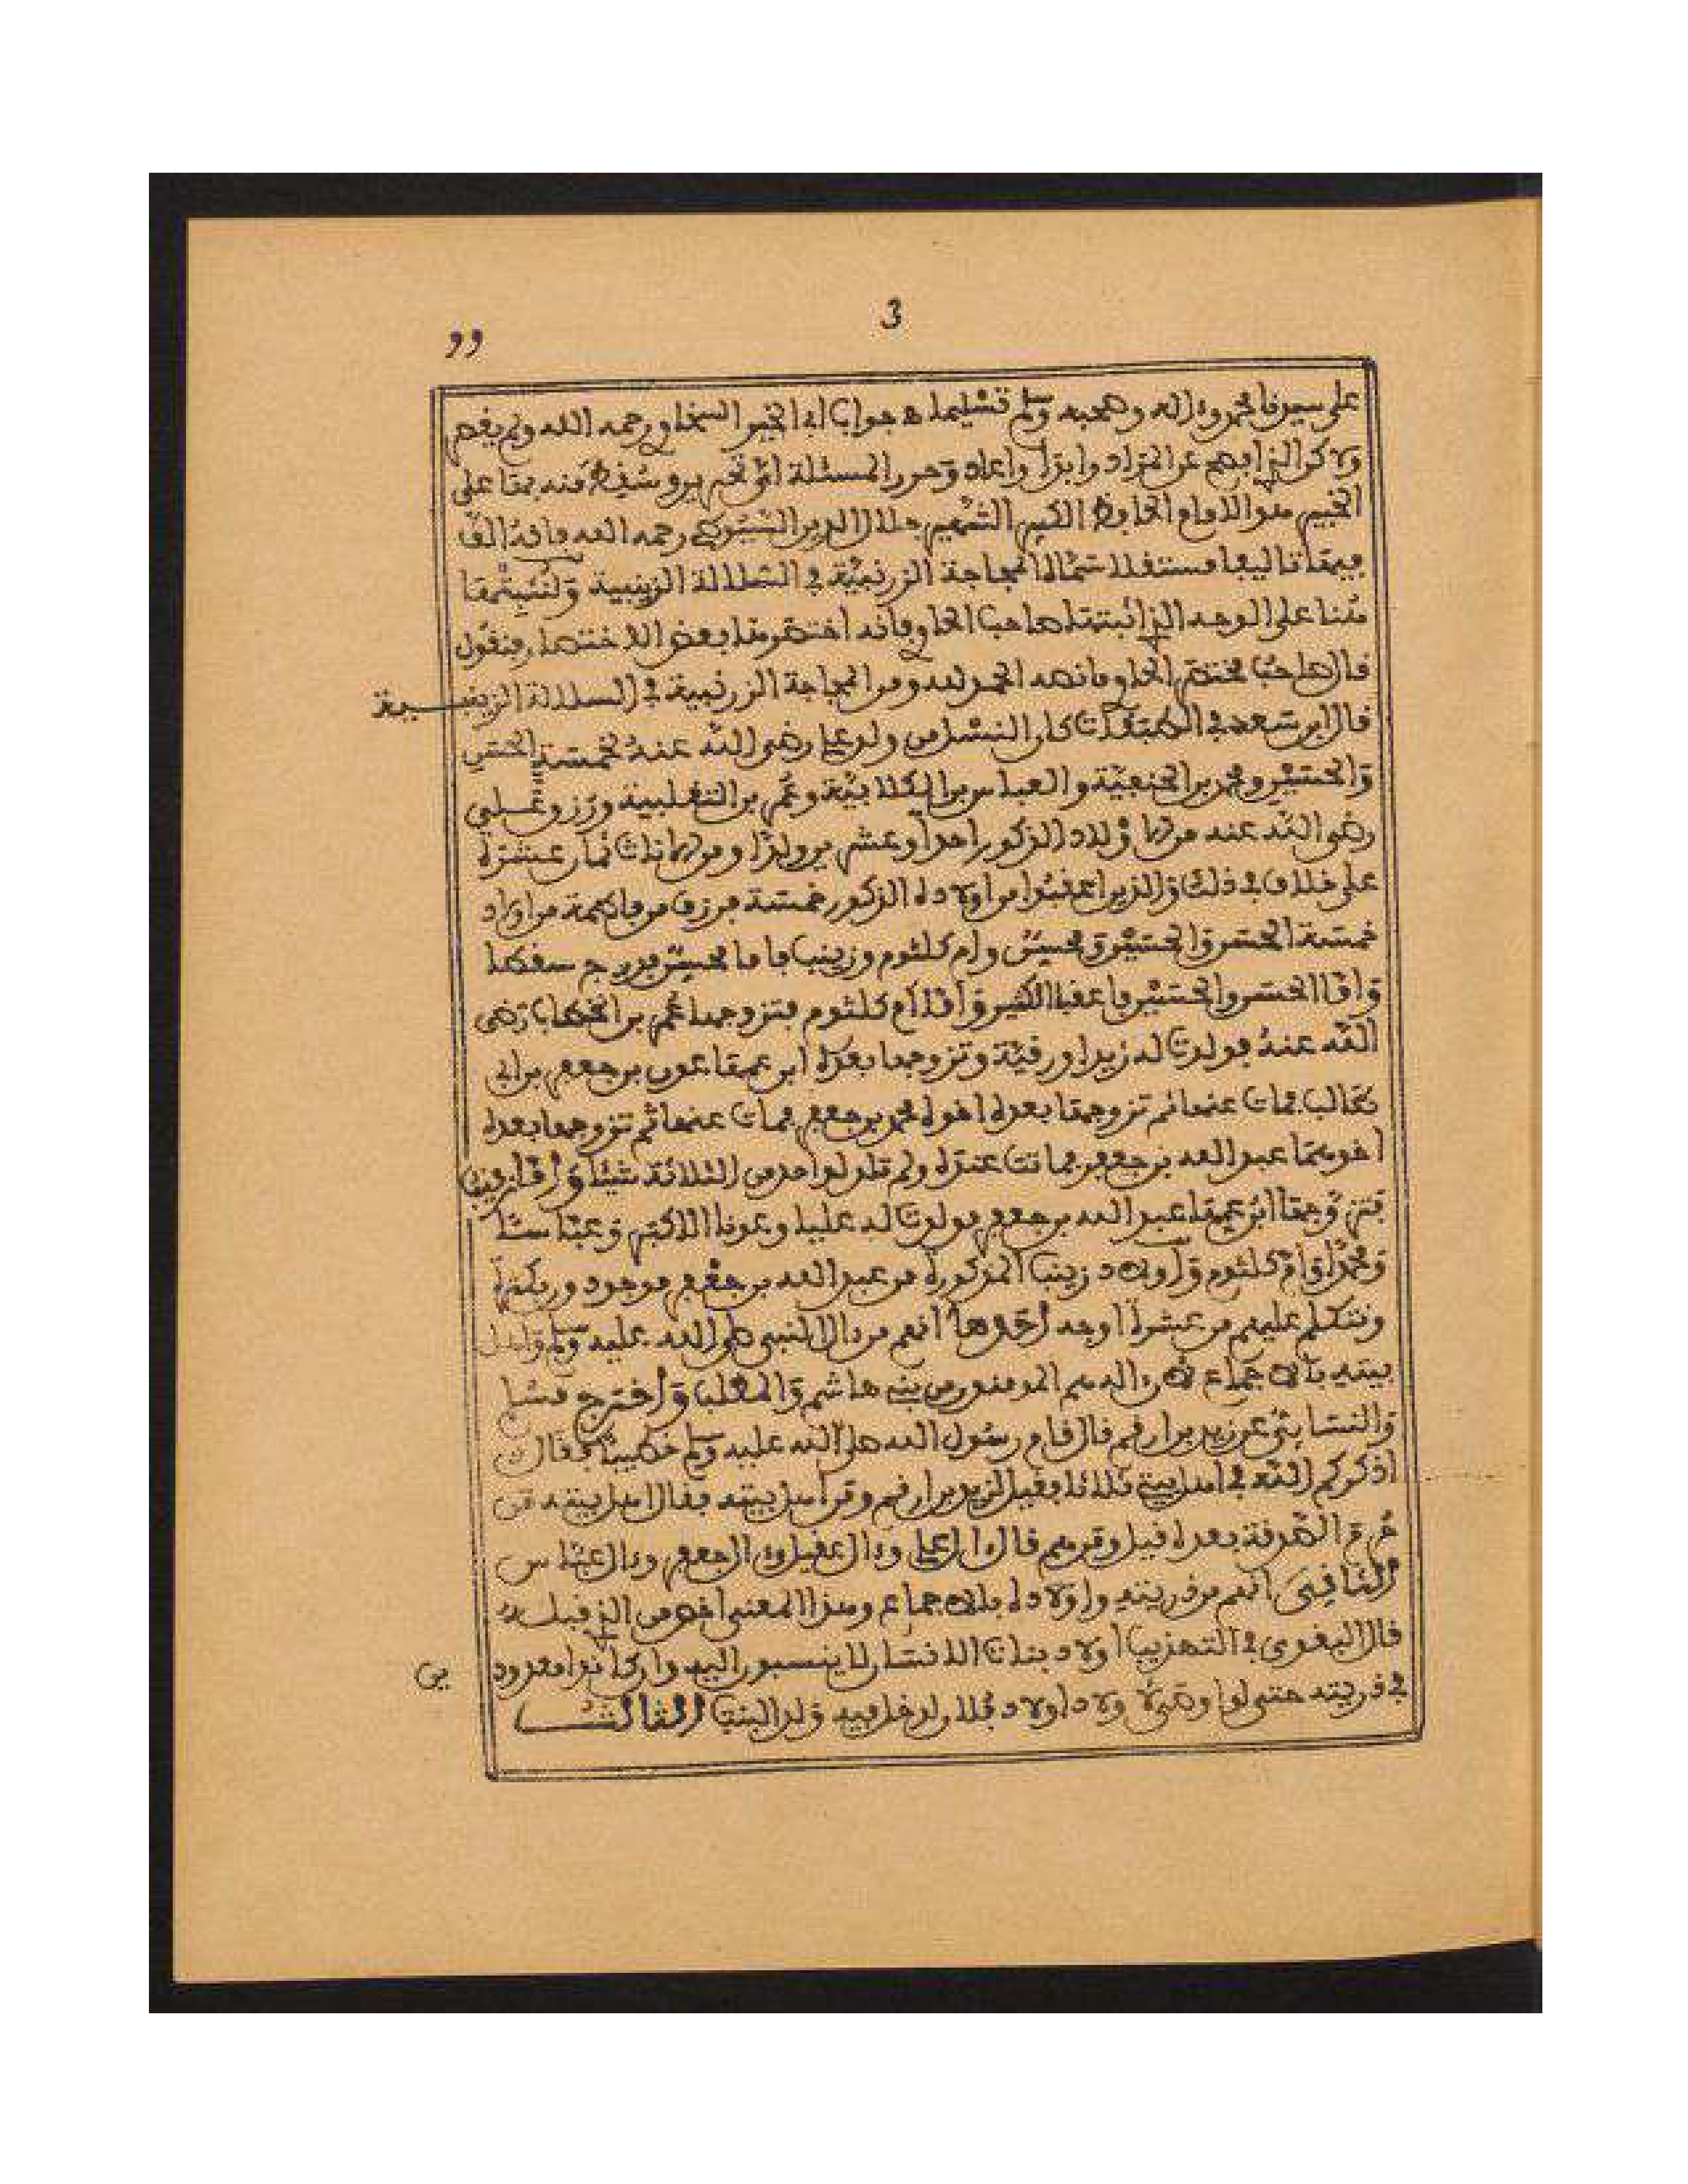 3
على سيدنا محمد وءاله وصحبه وسلم تسليما ه جواب ابي الخير السخاوي رحمه الله ولم يفصح
ولاكن الذي افصح عن المراد وابدأ واعاد وحرر المسئلة اي تحرير وسقط منه بها على
الخبير هو الامام الحافظ الكبير الشهير جلال الدين السيوطي رحمه الله فانه الف
فيها تاليفا مستقلا سماه العجاجة الزرنبية في السلالة الزينبية ولنثبتها
هنا على الوجه الذي اثبتها صاحب الحاوي فانه اختصرها بعض الاختصار فنقول
قال صاحب مختصر الحاوي ما نصه الحمد لله ومن العجاجة الزرنبية في السلالة الزينبية
قال ابن سعد في الطبقات كان النسل من ولد علي رضي الله عنه لخمسة الحسن
والحسين ومحمد بن الحنفية والعباس بن الكلابية وعمر بن التغلبية ورزق علي
رضي الله عنه من الاولاد الذكور احدا وعشرين ولدا ومن الاناث ثمان عشرة
على خلاف في ذلك والذين اعقبوا من اولاده الذكور خمسة فرزق من فاطمة من اولاد
خمسة الحسن والحسين ومحسن وام كلثوم وزينب فاما محسن فدرج سقطا
واما الحسن والحسين فاعقبا الكثير واما ام كلثوم فتزوجها عمر بن الخطاب رضي
الله عنه فولدت له زيدا ورقية وتزوجها بعده ابن عمها عون بن جعفر بن ابي
طالب فمات عنها ثم تزوجها بعده اخوه محمد بن جعفر فمات عنها ثم تزوجها بعده
اخوهما عبد الله بن جعفر فماتت عنده ولم تلد لواحد من الثلاثة شيئا واما زينب
فتزوجها ابن عمها عبد الله بن جعفر فولدت له عليا وعونا الاكبر وعباسا
ومحمدا وام كلثوم واولاد زينب المذكورة من عبد الله بن جعفر موجودون بكثرة
ونتكلم عليهم من عشرة اوجه احدها انهم من ءال النبي صلى الله عليه وسلم واهل
بيته بالاجماع لان ءاله هم المومنون من بني هاشم والمطلب واخرج مسلم
والنسائي عن زيد بن ارقم قال قام رسول الله صلى الله عليه وسلم خطيبا فقال
اذكركم الله في اهل بيتي ثلاثا فقيل لزيد بن ارقم ومن اهل بيته فقال اهل بيته من
حرم الصدقة بعده قيل ومن هم قال ءال علي وءال عقيل وءال جعفر وءال عباس
الثاني انهم من ذريته واولاده بالاجماع وهذا المعنى اخص من الذي قبله
قال البغوي في التهذيب اولاد بنات الانسان لا ينسبون اليه وان كانوا معدودين
في ذريته حتى لو اوصى لاولاد اولاد فلان لم يدخل فيه ولد البنت الثالث